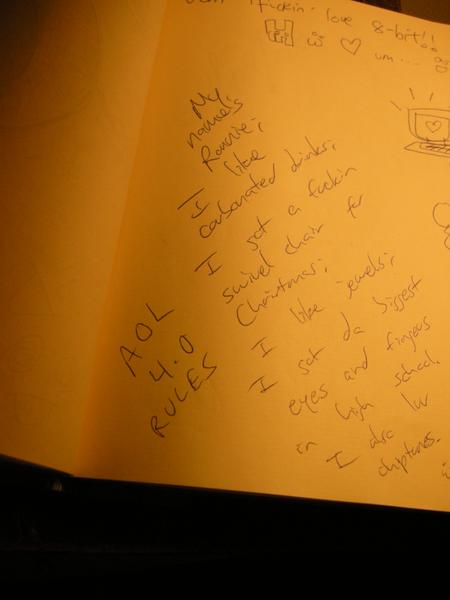 fuckin' love 8-bit!!
um...
My
name's
Ronnie;
I like
carbonated drinks;
I got a fuckin
swivel chair for
Christmas;
I like jewels;
I got da biggest
eyes and fingers
in high school.
I also luv
chiptunes.
AOL
4.0
RULES